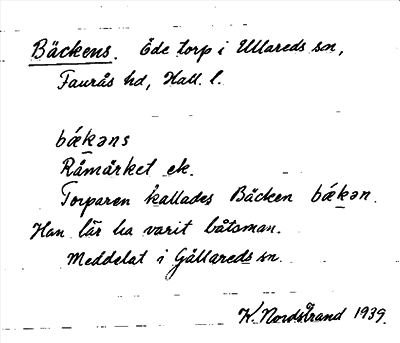 Bäckens. Öde torp i Ullareds sn,
Faurås hd, Hall. l.
bǽkəns
Råmärket ek.
Torparen kallades Bäcken bǽkən.
Han lär ha varit båtsman.
Meddelat i Gällareds sn.
K. Nordstrand 1939.